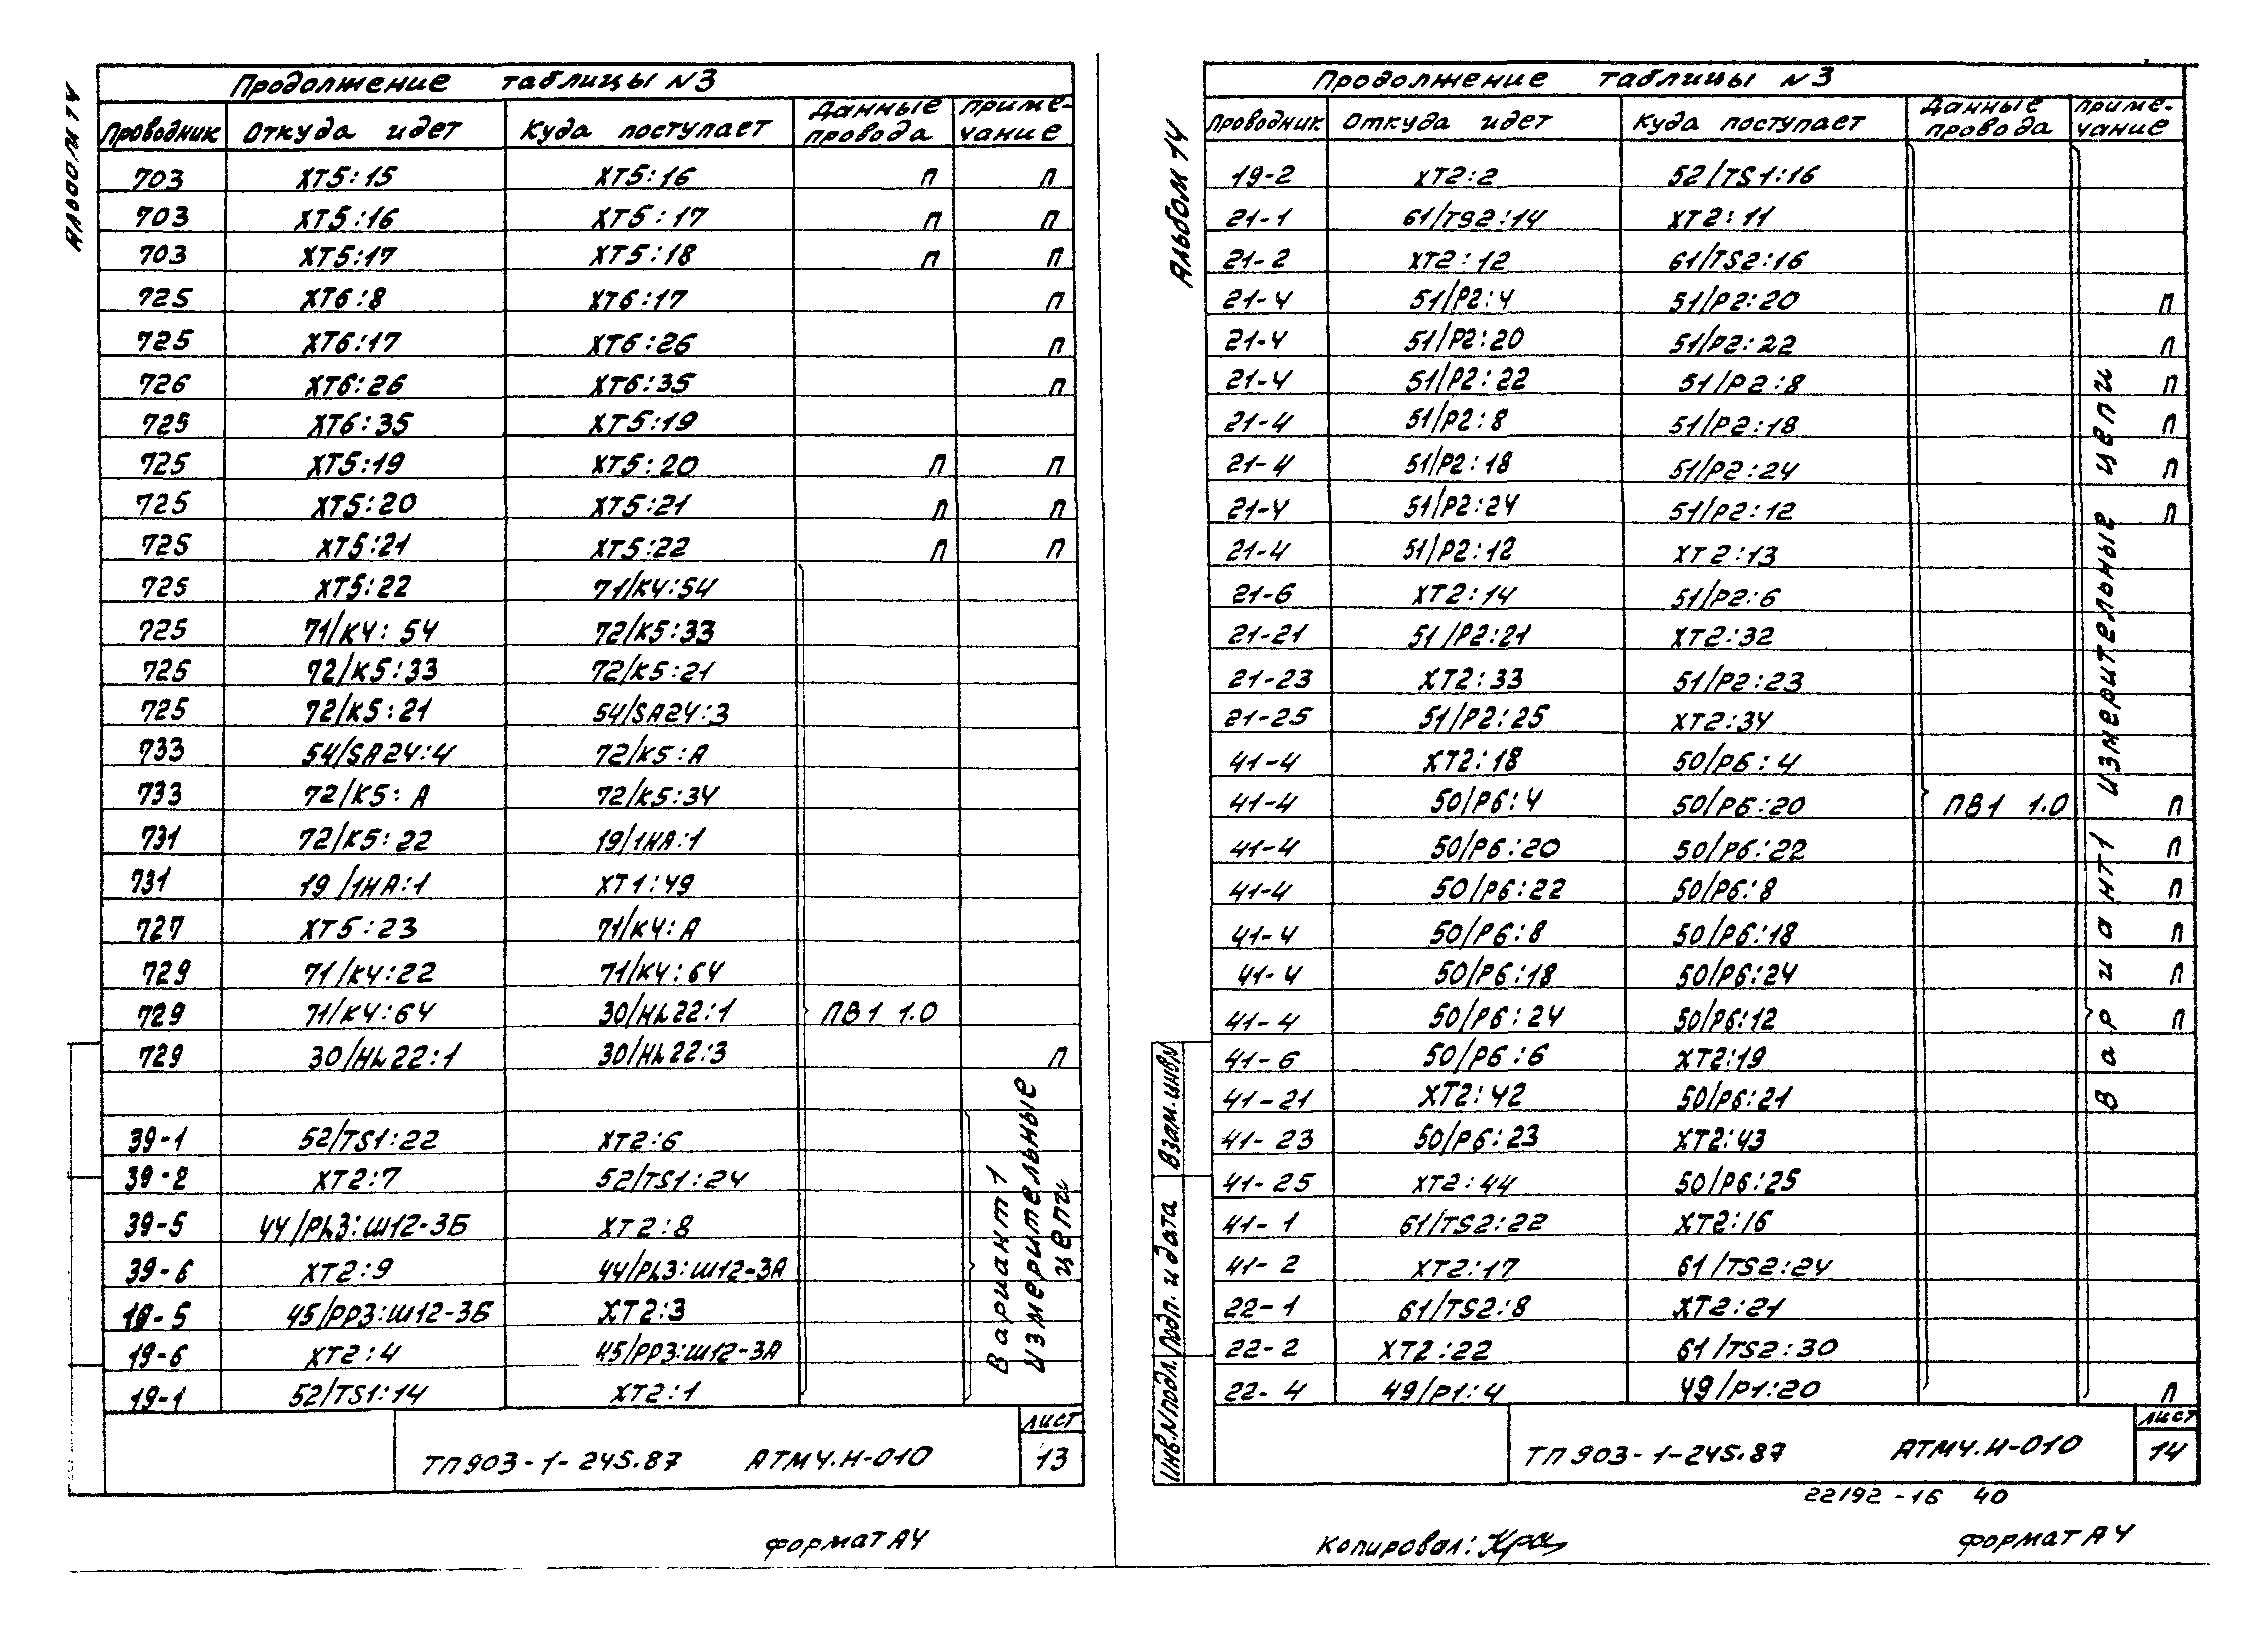 Альбом 14
Продолжение таблицы N3
Проводник Откуда идет Куда поступает Данные провода Приме-чание
703 XT5:15 XT5:16 П П
703 XT5:16 XT5:17 П П
703 XT5:17 XT5:18 П П
725 XT6:8 XT6:17 П
725 XT6:17 XT6:26 П
726 XT6:26 XT6:35 П
725 XT6:35 XT5:19
725 XT5:19 XT5:20 П П
725 XT5:20 XT5:21 П П
725 XT5:21 XT5:22 П П
725 XT5:22 71/K4:54
725 71/K4:54 72/K5:33
725 72/K5:33 72/K5:21
725 72/K5:21 54/SA24:3
733 54/SA24:4 72/K5:A
733 72/K5:A 72/K5:34
731 72/K5:22 19/1HA:1
731 19/1HA:1 XT1:49
727 XT5:23 71/K4:A
729 71/K4:22 71/K4:64
729 71/K4:64 30/HL22:1 ПВ1 1.0
729 30/HL22:1 30/HL22:3 П
39-1 52/TS1:22 XT2:6
39-2 XT2:7 52/TS1:24
39-5 44/PL3:Ш12-3Б XT2:8
39-6 XT2:9 44/PL3:Ш12-3А
19-5 45/PP3:Ш12-3Б XT2:3
19-6 XT2:4 45/PP3:Ш12-3А
19-1 52/TS1:14 XT2:1
Вариант 1
измерительные
цепи
ТП903-1-245.87 АТМ4.Н-010
Лист
13
Формат А4
Альбом 14
Продолжение таблицы N3
Проводник Откуда идет Куда поступает Данные провода Приме-чание
19-2 XT2:2 52/TS1:16
21-1 61/TS2:14 XT2:11
21-2 XT2:12 61/TS2:16
21-4 51/P2:4 51/P2:20 П
21-4 51/P2:20 51/P2:22 П
21-4 51/P2:22 51/P2:8 П
21-4 51/P2:8 51/P2:18 П
21-4 51/P2:18 51/P2:24 П
21-4 51/P2:24 51/P2:12 П
21-4 51/P2:12 XT2:13
21-6 XT2:14 51/P2:6
21-21 51/P2:21 XT2:32
21-23 XT2:33 51/P2:23
21-25 51/P2:25 XT2:34
41-4 XT2:18 50/P6:4
41-4 50/P6:4 50/P6:20 ПВ1 1.0 П
41-4 50/P6:20 50/P6:22 П
41-4 50/P6:22 50/P6:8 П
41-4 50/P6:8 50/P6:18 П
41-4 50/P6:18 50/P6:24 П
41-4 50/P6:24 50/P6:12 П
41-6 50/P6:6 XT2:19
41-21 XT2:42 50/P6:21
41-23 50/P6:23 XT2:43
41-25 XT2:44 50/P6:25
41-1 61/TS2:22 XT2:16
41-2 XT2:17 61/TS2:24
22-1 61/TS2:8 XT2:21
22-2 XT2:22 61/TS2:30
22-4 49/P1:4 49/P1:20 П
Вариант1 измерительные цепи
Инв.N подл. Подп. и дата Взам.инв.N
ТП903-1-245.87 АТМ4.Н-010
Лист
14
22192-16 40
Копировал:
Формат А4